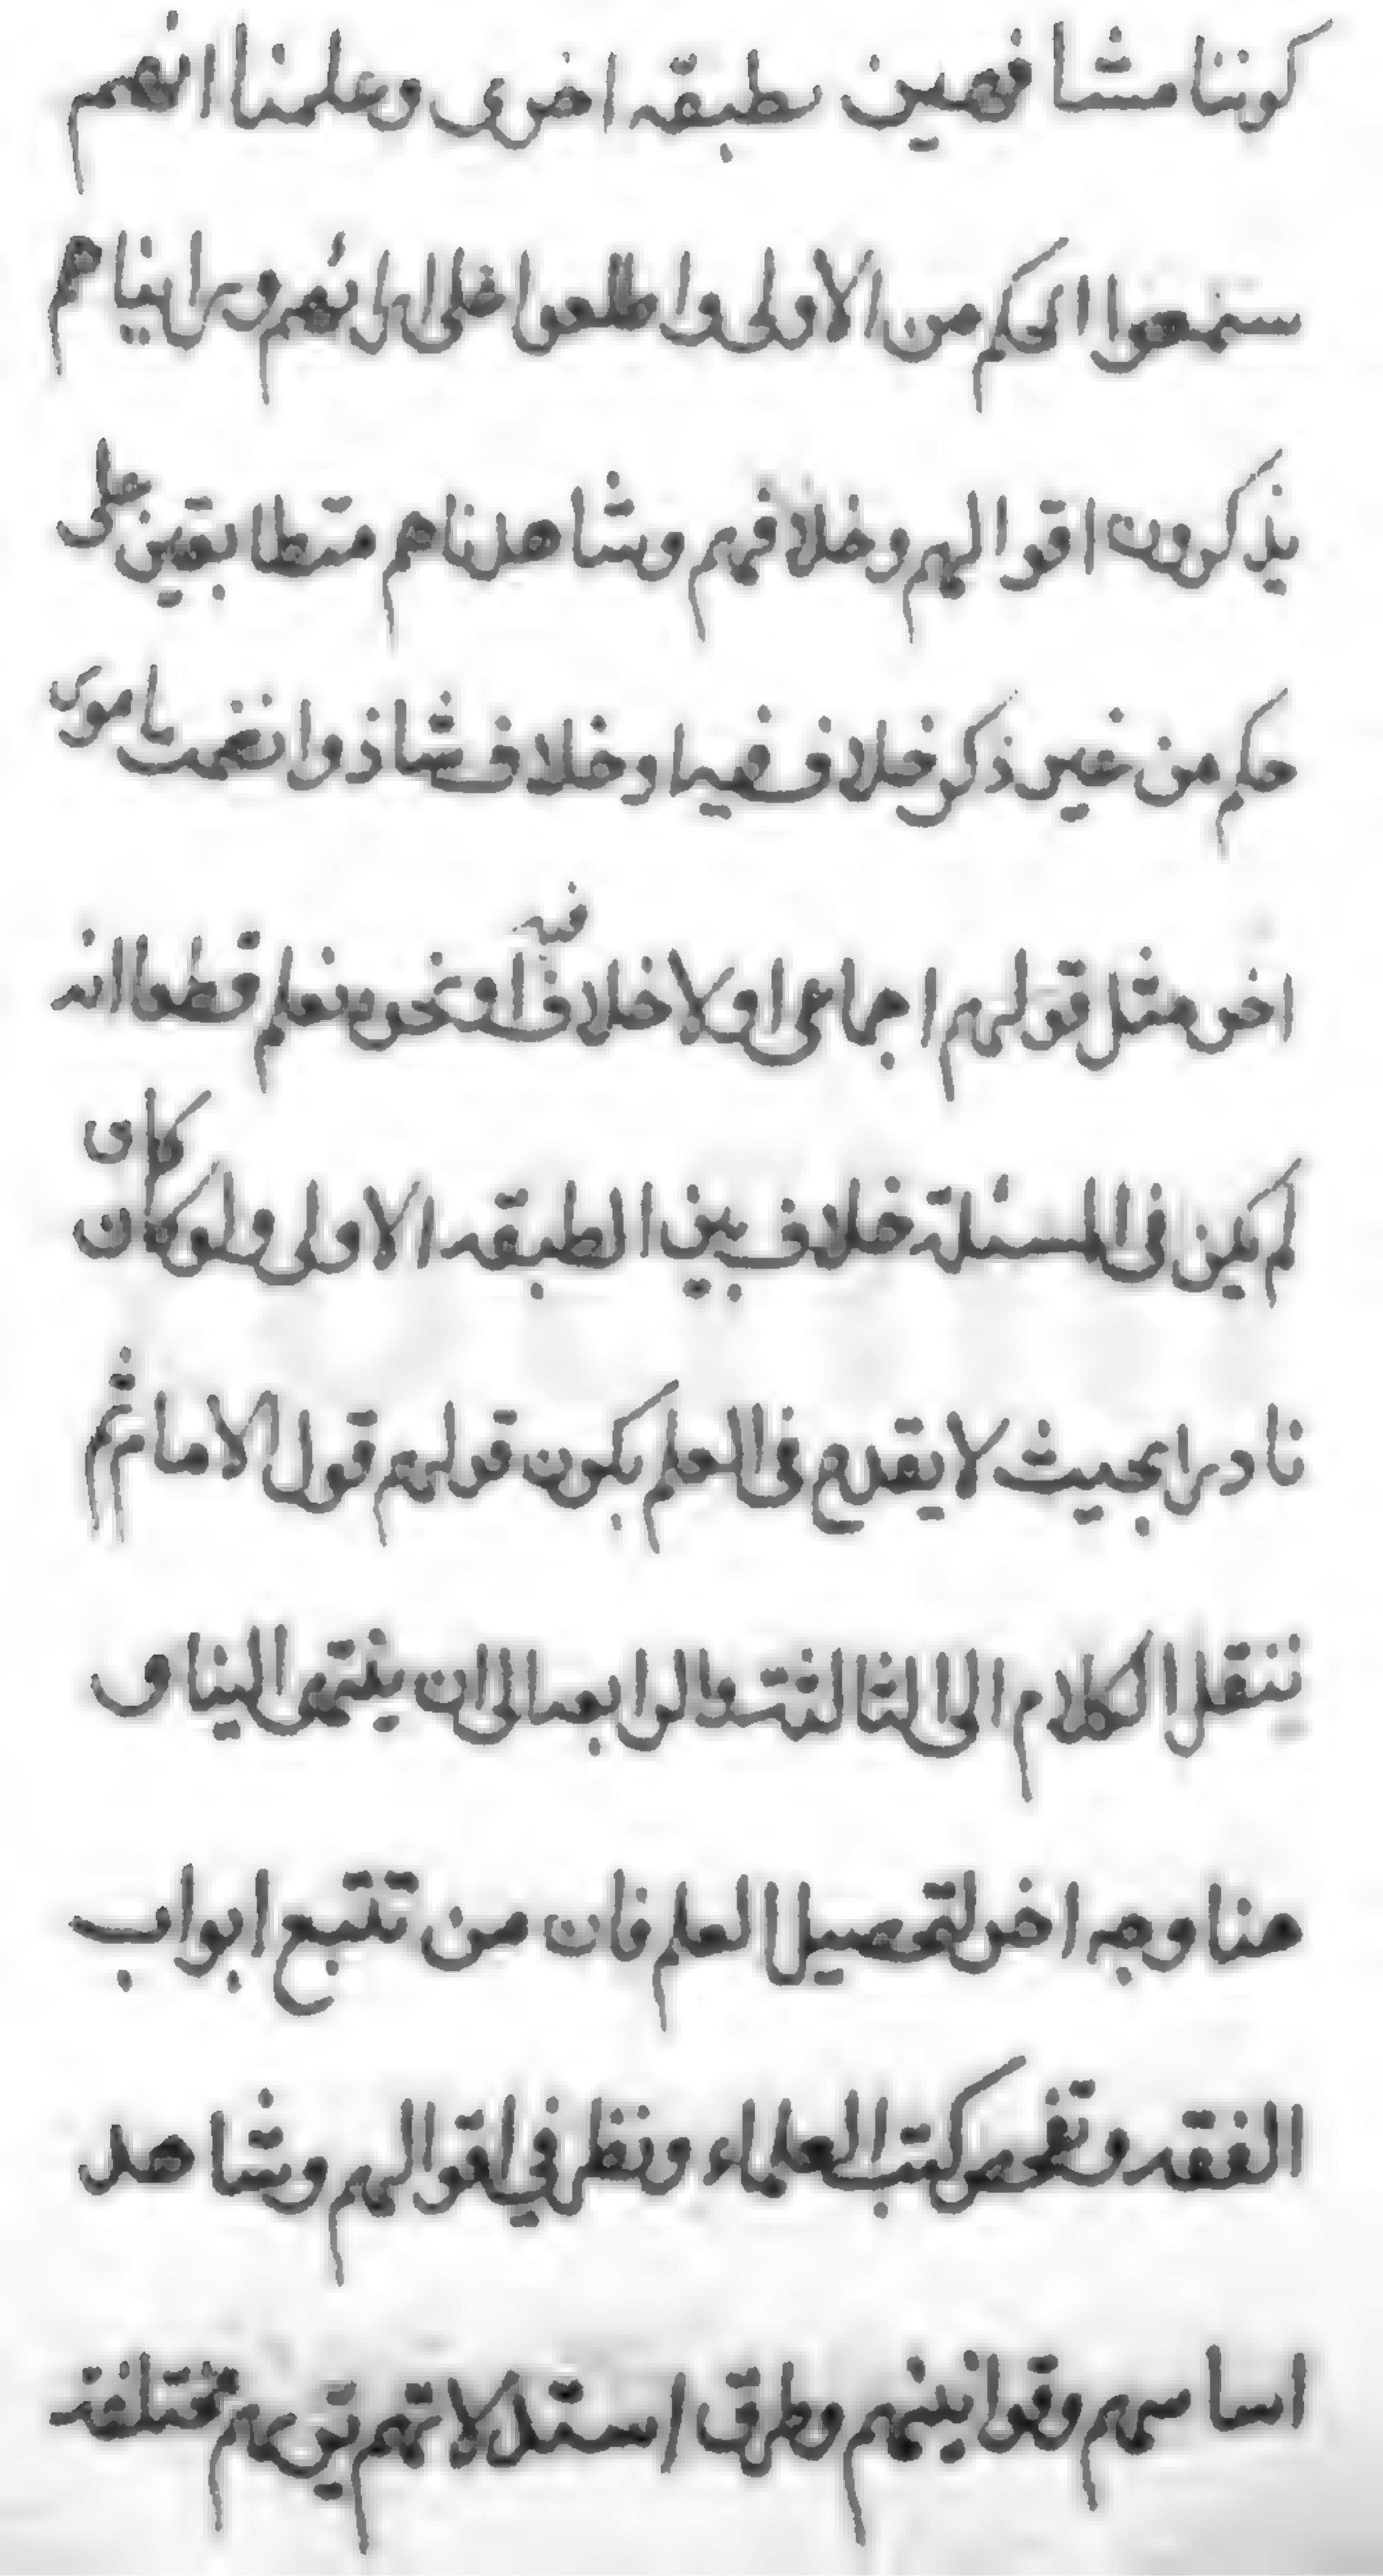 كوننا مشافهين بطبقه اخرى وعلمنا انهم
سمعوا الحكم من الاولى واطلعوا على ارائهم ورايناهم
يذكرون اقوالهم وخلافهم وشاهدناهم متطابقين على
حكم من غير ذكر خلاف فيها وخلاف شاذ وانضمت بامور
اخر مثل قولهم اجماعى اولا خلاف فيه او نحوه نعلم قطعا انه
لم يكن فى المسئلة خلاف بين الطبقه الاولى ولو كان كان
نادرا بحيث لا يقدح فى العلم بكون قولهم قول الامام ثم
ننقل الكلام الى الثالثة والرابعه الى ان ينتهى الينا و
هنا وجه اخر لتحصيل العلم فان من تتبع ابواب
الفقه وتفحص كتب العلماء ونظر في اقوالهم وشاهد
اساسهم وقوانينهم وطرق استدلالاتهم يريهم مختلفة